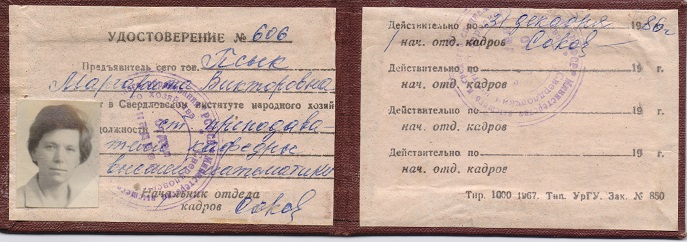 УДОСТОВЕРЕНИЕ № 606
Предъявитель сего тов. Псык
Маргарита Викторовна
т в Свердловском институте народного хозяй
должности ст. преподава
теля кафедры
высшей математики
Начальник отдела
кадров
Действительно по 31 декабря 1986 г.
нач. отд. кадров
Действительно по 19 г.
нач. отд. кадров
Действительно по 19 г.
нач. отд. кадров
Действительно по 19 г.
нач. отд. кадров
Тир. 1000 1967. Тип. УрГУ. Зак. № 850